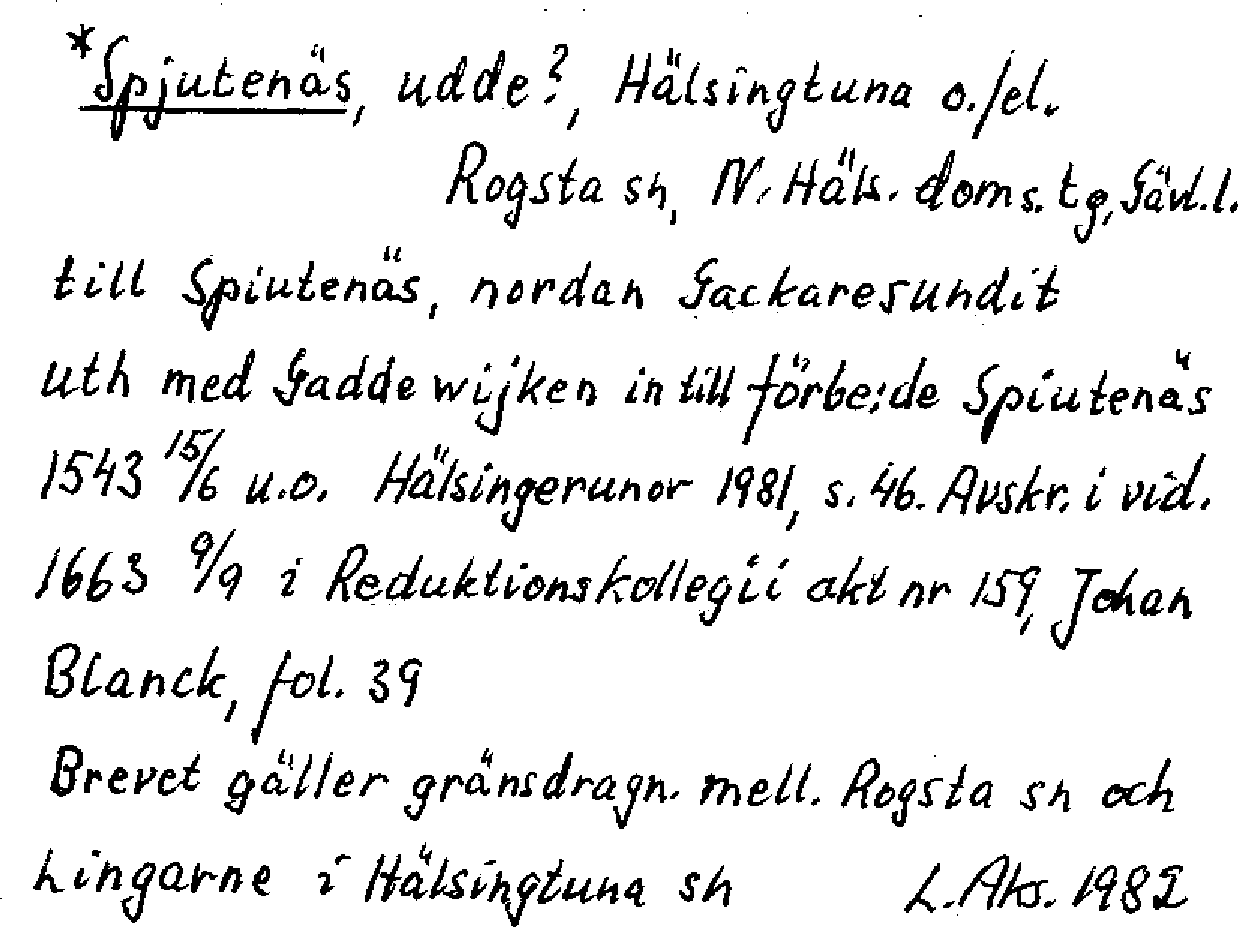 *Spjutenäs, udde?, Hälsingtuna o./el.
Rogsta sn, N. Häls. doms. tg, Gävl. l.
till Spiutenäs, nordan Gackaresundit
uth med Gaddewijken in till förbe:de Spiutenäs
1543 15/6 u.o. Hälsingerunor 1981, s. 46. Avskr. i vid.
1663 9/9 i Reduktionskollegii akt nr 159, Johan
Blanck, fol. 39
Brevet gäller gränsdragn. mell. Rogsta sn och
Lingarne i Hälsingtuna sn L. Aks. 1982